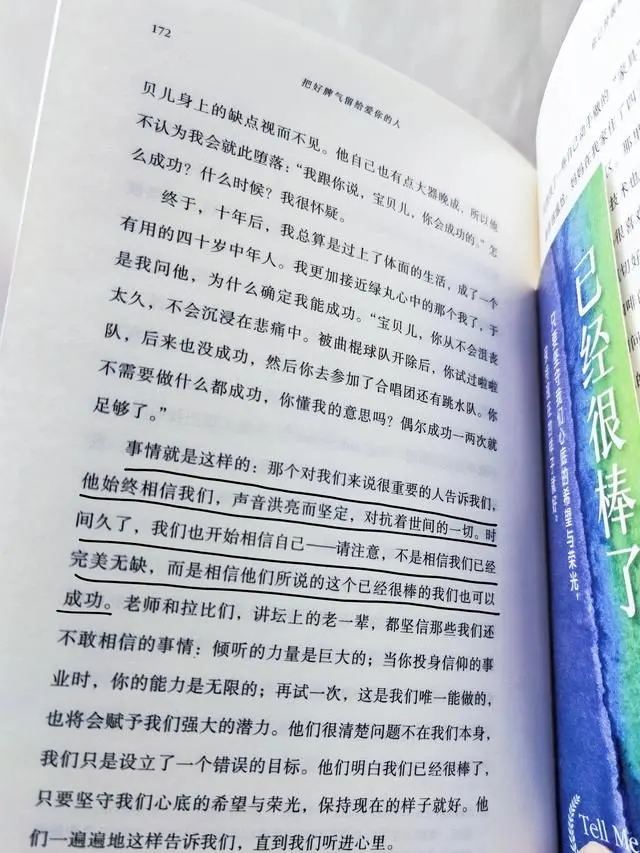 172
把好脾气留给爱你的人
贝儿身上的缺点视而不见。他自己也有点大器晚成,所以他
不认为我会就此堕落:“我跟你说,宝贝儿,你会成功的。”怎
么成功?什么时候?我很怀疑。
终于,十年后,我总算是过上了体面的生活,成了一个
有用的四十岁中年人。我更加接近绿丸心中的那个我了,于
是我问他,为什么确定我能成功。“宝贝儿,你从不会沮丧
太久,不会沉浸在悲痛中。被曲棍球队开除后,你试过啦啦
队,后来也没成功,然后你去参加了合唱团还有跳水队。你
不需要做什么都成功,你懂我的意思吗?偶尔成功一两次就
足够了。”
事情就是这样的:那个对我们来说很重要的人告诉我们,
他始终相信我们,声音洪亮而坚定,对抗着世间的一切。时
间久了,我们也开始相信自己——请注意,不是相信我们已经
完美无缺,而是相信他们所说的这个已经很棒的我们也可以
成功。老师和拉比们,讲坛上的老一辈,都坚信那些我们还
不敢相信的事情:倾听的力量是巨大的;当你投身信仰的事
业时,你的能力是无限的;再试一次,这是我们唯一能做的,
也将会赋予我们强大的潜力。他们很清楚问题不在我们本身,
我们只是设立了一个错误的目标。他们明白我们已经很棒了,
只要坚守我们心底的希望与荣光,保持现在的样子就好。他
们一遍遍地这样告诉我们,直到我们听进心里。
已经很棒了
只要坚守我们心底的希望与荣光,
Tell Me